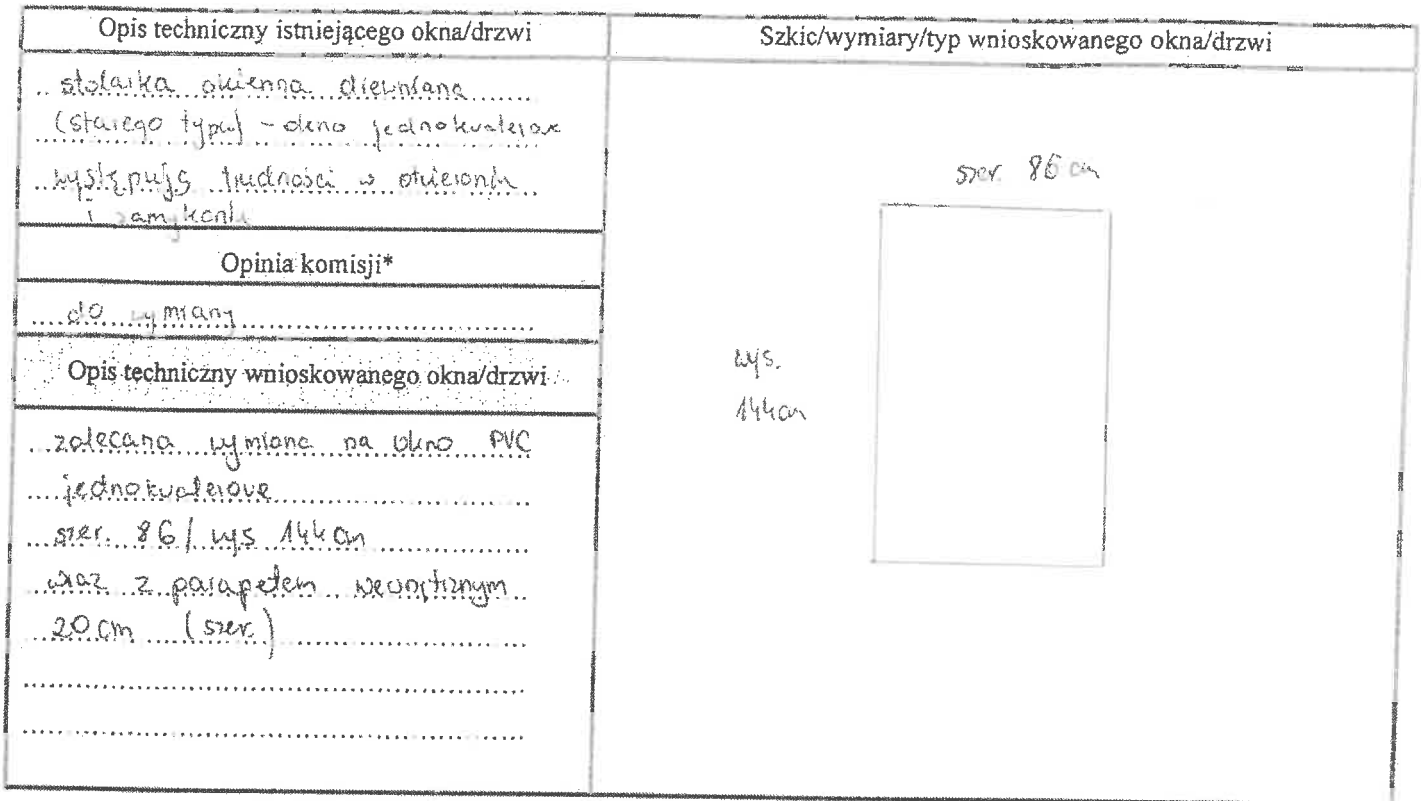 Opis techniczny istniejącego okna/drzwi
stolarka okienna drewniana
(starego typu) - okno jednokwaterowe
występują trudności w otwieraniu
i zamykaniu
Opinia komisji*
do wymiany
Opis techniczny wnioskowanego okna/drzwi
zalecana wymiana na okno PVC
jednokwaterowe
szer. 86/ wys 144 cm
wraz z parapetem wewnętrznym
20 cm (szer.)
Szkic/wymiary/typ wnioskowanego okna/drzwi
szer. 86 cm
wys.
144cm